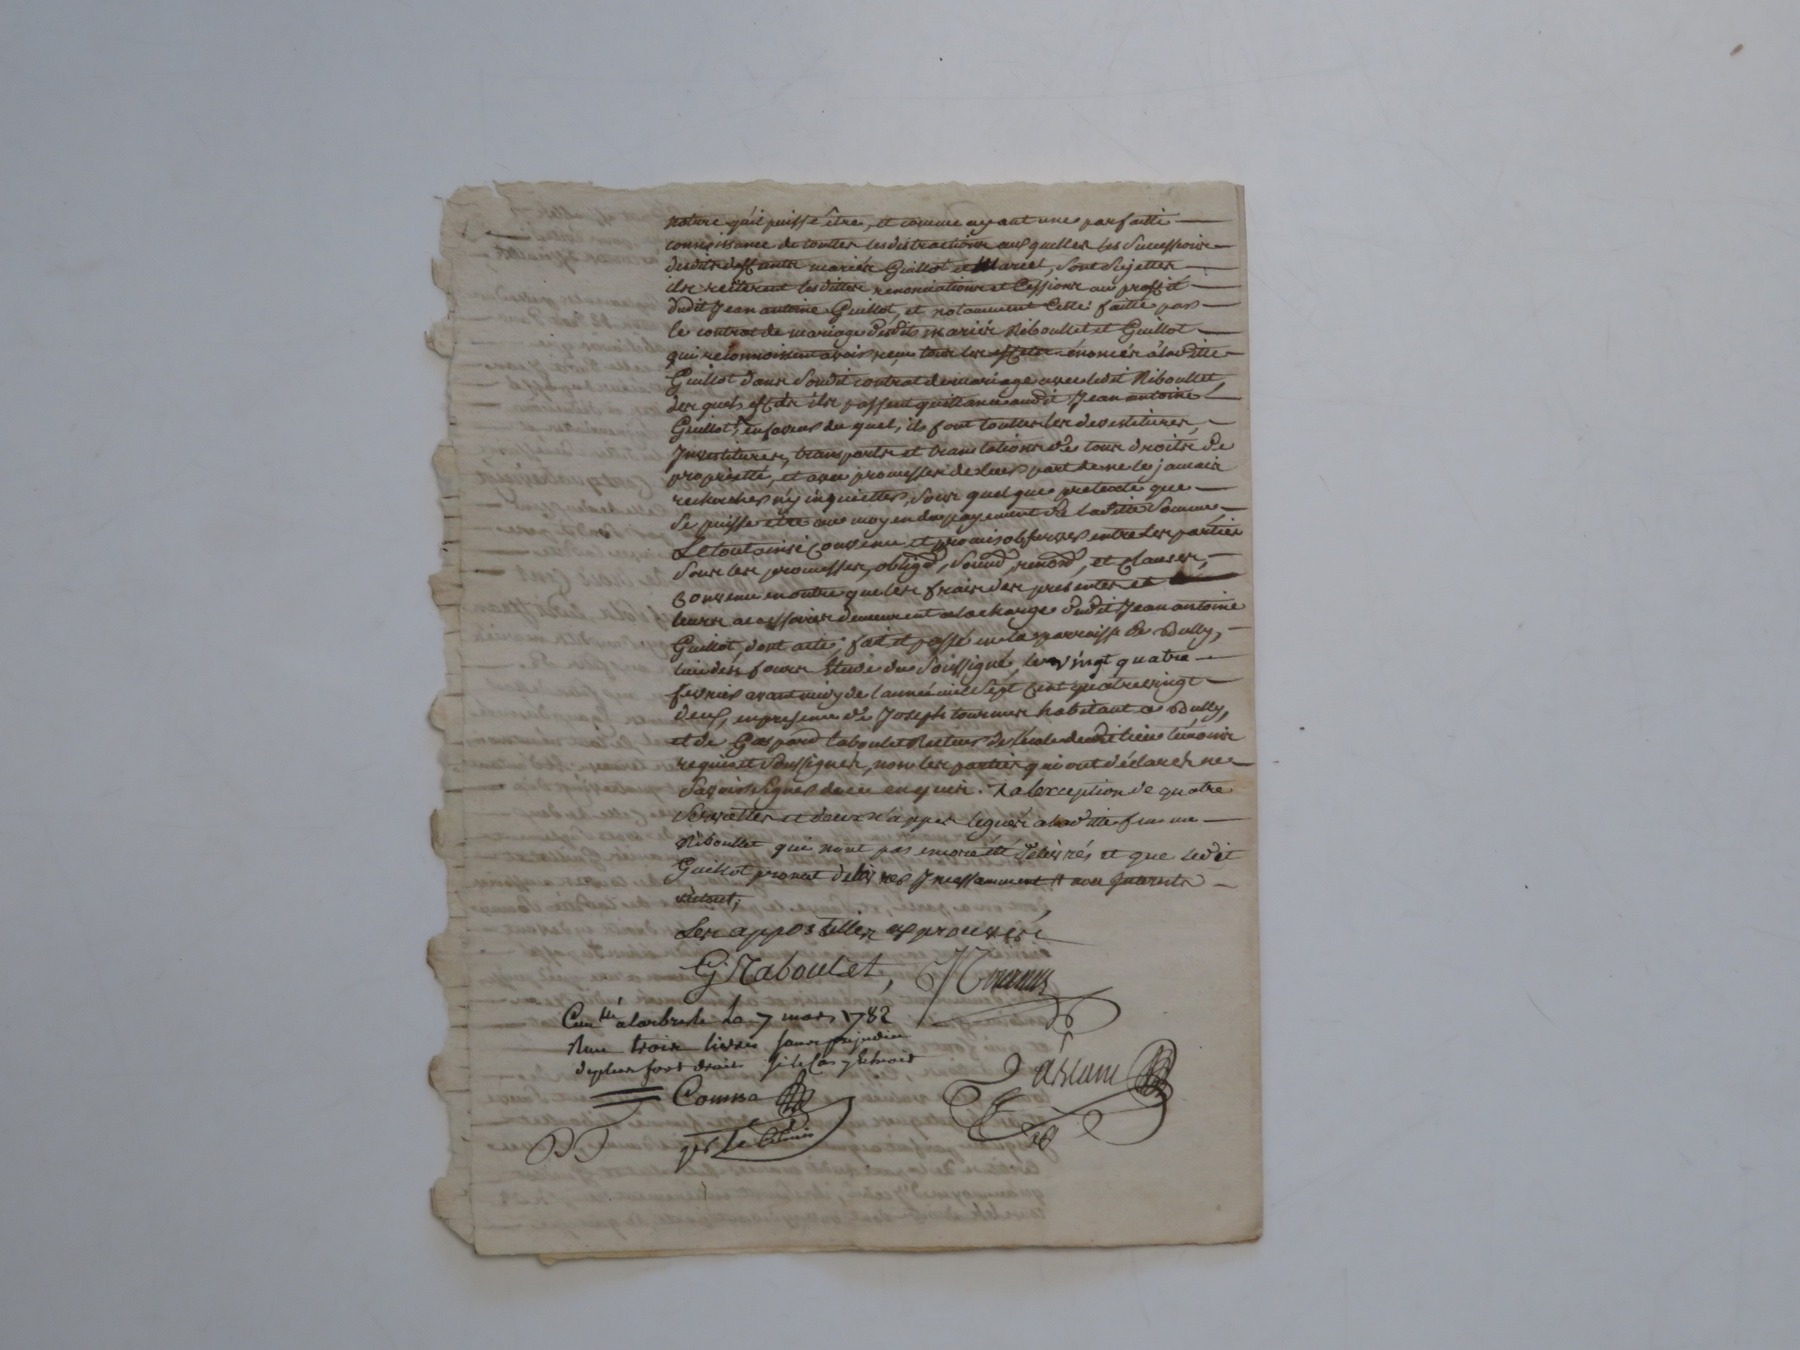 nature qu'il puisse être, et comme ayant une parfaitte
connoissance de touttes les distractions aux quelles les successions
desdits deffunts mariés Guillot et Marcel, sont sujettes
ils reiterent lesdittes renonciations et Cessions au proffit
dudit Jean antoine Guillot, et notamment Celle faitte par
le contrat de mariage desdits mariés Riboullet et Guillot
qui reconnoissent avoir reçu tous les effets énoncés à laditte
Guillot dans sondit contrat de mariage avec ledit Riboullet,
des quels effets ils passent quittance audit Jean antoine
Guillot, en faveur du quel, ils font touttes les devestitures,
Investitures, transports et translations de tous droits de
proprietté, et avec promesses de leur part de ne le jamais
rechercher n'y inquietter, sous quelque pretexte que
se puisse être au moyen du payement de laditte somme,
Le tout ainsi convenu et promis observer entre les parties
sous les promesses, obligõ, soumõ, renonõ, et clauses,
convenu en outre que les frais des presentes et
leurs accessoires demeurent a la charge dudit Jean antoine
Guillot, dont acte, fait et passé en la parroisse de Bully,
lieu des fours Etude du soussigné, le vingt quatre
fevrier avant midy de l'année mil sept cent quatre vingt
deux, en presence de Joseph tournus habitant a Bully,
et de Gaspard Raboulet Recteur de l'école dudit lieu témoins
requis et soussignés, non les parties qui ont déclaré ne
savoir signer de ce enquis. a l'exception de quatre
serviettes et deux nappes legués a laditte femme
Riboullet qui n'ont pas encore été délivrés et que ledit
Guillot promet délivrer Incessamment
Les appostilles approuvéés
G. Raboulet, J Tournus
Con.lé a larbresle Le 7 mars 1782
Reçu trois livres sans prejudice
de plus fort droit si le Cas y Echoit